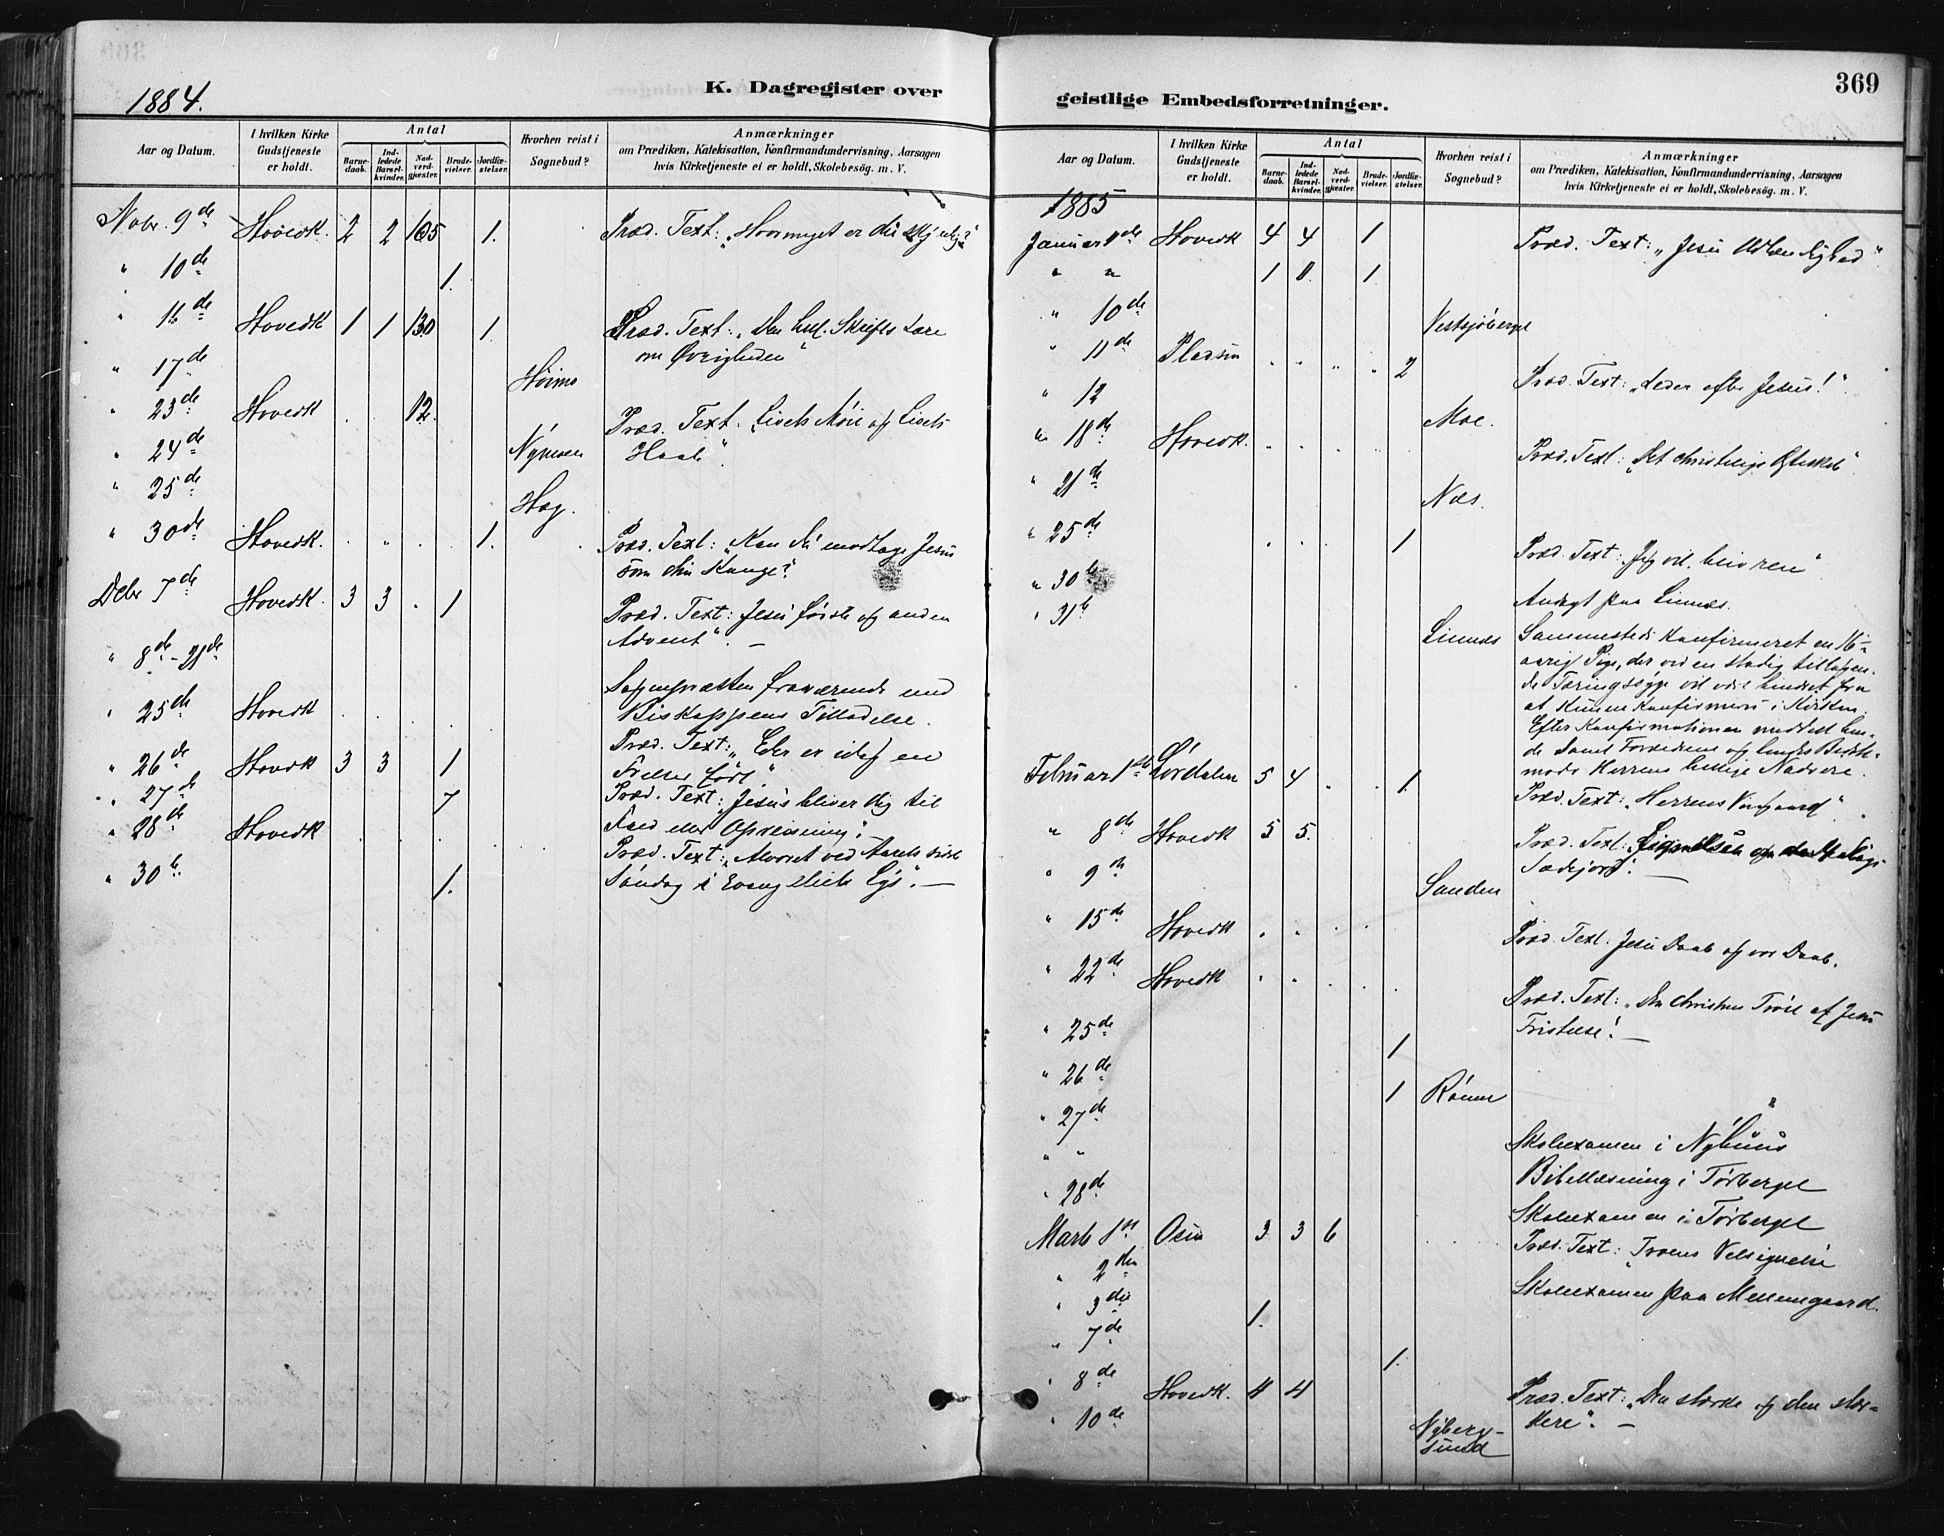 369
1884.
K. Dagregister over
geistlige Embedsforretninger.
Aar og Datum.
I hvilken Kirke Gudstjeneste er holdt.
Antal
Barne-daab.
Ind-ledede Barsel-kvinder.
Nad-verd-gjester.
Brude-vielser.
Jordfæ-stelser.
Hvorhen reist i Sognebud?
Anmærkninger
om Prædiken, Katekisation, Konfirmandundervisning, Aarsagen
hvis Kirketjeneste ei er holdt, Skolebesøg. m. V.
Novbr. 9de Hovedk. 2 2 105 1. Præd. Text: „Hvormeget er du skyldig?"
" 10de 1.
" 16de Hovedk 1 1 130 1. Præd. Text: „Den hel. Skrifts Lære
om Øvrigheden"
" 17de
" 23de Hovedk . . 12. Præd. Text. „Livets og Livets
" 24de Haab".
" 25de Hag.
" 30de Hovedk. . " . . 1. Præd. Text: „Kan du modtage Jesus
som din Konge?
Debr 7de Hovedk. 3 3 . 1 Præd. Text: Jesu første og anden
Advent". —
" 8de - 21de
Sognepræsten fraværende med
Biskoppens Tilladelse.
" 25de Hovedk . . . . Præd. Text: „Eder er idag en
Frelser født".
" 26de Hovedk 3 3 1 Præd. Text: „Jesus bliver dig til
Fald eller Opreisning".
" 27de 7
" 28de Hovedk . . . . Præd. Text: „Alvoret ved Aarets sidste
Søndag i Evangeliets Lys". —
" 30te 1.
Aar og Datum.
I hvilken Kirke Gudstjeneste er holdt.
Antal
Barne-daab.
Ind-ledede Barsel-kvinder.
Nad-verd-gjester.
Brude-vielser.
Jordfæ-stelser.
Hvorhen reist i Sognebud?
Anmærkninger
om Prædiken, Katekisation, Konfirmandundervisning, Aarsagen
hvis Kirketjeneste ei er holdt, Skolebesøg. m. V.
1885
Januar Hovedk 4 4 1 Præd. Text: „Jesu
" " 1 0 1.
" 10de Vestsjøberget
" 11de Plassen . . . . 2 Præd. Text: „Leder efter Jesus!"
" 12 Moe.
" 18de Hovedk. . . . . Præd. Text: „Det christelige
" 21de Næs.
" 25de . . 1 Præd. Text: „Jeg vil, bliv ren"
" 30te Andagt paa Linnæs.
" 31te Linnæs Sammesteds Konfirmeret en 16-
aarig Pige, der ved en stadig tiltagen-
de Tæringssyge vil være hindret fra
at kunne konfirmeres i Kirken.
Efter Konfirmationen meddelt hen-
de samt Forældrene og hendes Bedste-
moder Herrens hellige Nadvere.
Februar 1ste Lørdalen 5 4 . . 1. Præd. Text: „Herrens Vingaard".
" 8de Hovedk 5 5. Præd. Text: Lignelsen
Sædejord". —
" 9de Sanden
" 15de Hovedk . . . . Præd. Text. Jesu Daab og vor Daab.
" 22de Hovedk . . . . . Præd. Text: „Den Christnes Trøst af Jesu
Fristelse". —
" 25de 1
" 26de 1 Rønne
" 27de Skoleexamen i Nyhuus
" " Bibellæsning i Tørberget
" 28de Skoleexamen i Tørberget
Marts 1ste Osen 3 3 6 Præd. Text: „Troens Velsignelse
" 2den Skoleexamen paa Mellemgaard.
" 3die 1.
" 7de 1.
" 8de Hovedk. 4 4 Præd. Text: „Den stærke og den stær-
kere". —
" 10de Nyberg-
sund